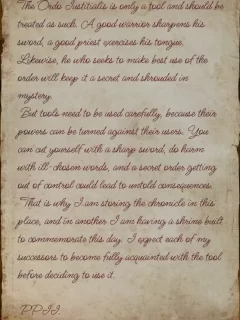 The Ordo Iustitialis is only a tool and should be
treated as such. A good warrior sharpens his
sword, a good priest exercises his tongue.
Likewise, he who seeks to make best use of the
order will keep it a secret and shrouded in
mystery.
But tools need to be used carefully, because their
powers can be turned against their users. You
can cut yourself with a sharp sword, do harm
with ill-chosen words, and a secret order getting
out of control could lead to untold consequences.
That is why I am storing the chronicle in this
place, and in another I am having a shrine built
to commemorate this day. I expect each of my
successors to become fully acquainted with the tool
before deciding to use it.
PPII.